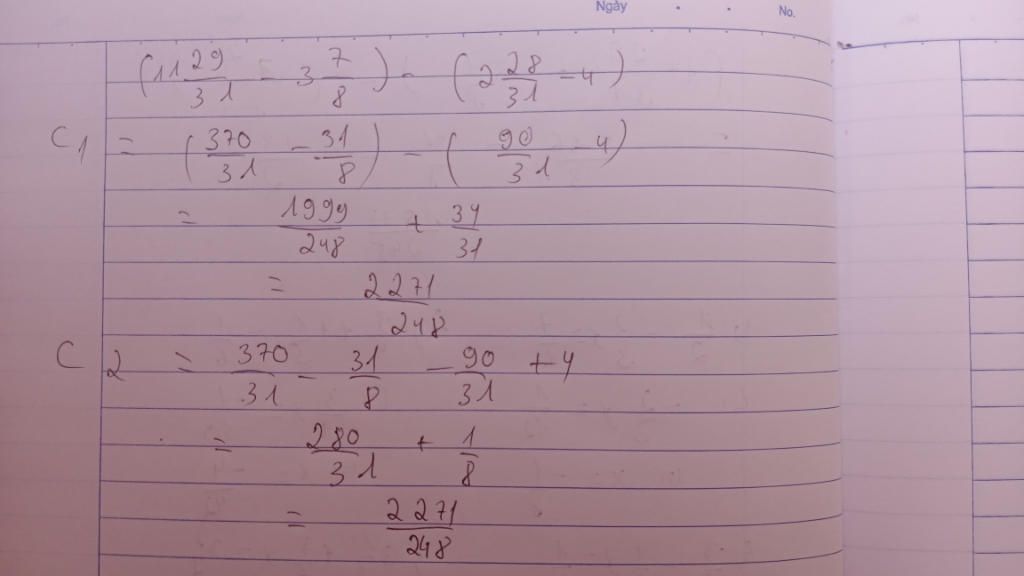 Ngày . . No.
(11 29/31 - 3 7/8) - (2 28/31 - 4)
C1 = (370/31 - 31/8) - (90/31 - 4)
= 1999/248 + 34/31
= 2271/248
C2 = 370/31 - 31/8 - 90/31 + 4
= 280/31 + 1/8
= 2271/248